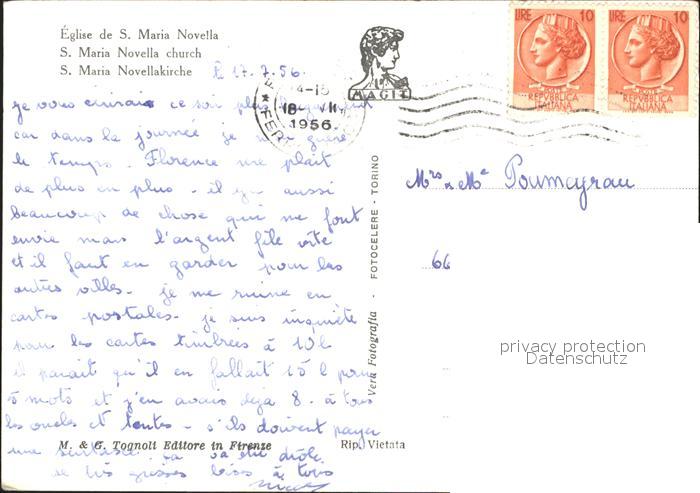 Église de S. Maria Novella
S. Maria Novella church
S. Maria Novellakirche
17.7.56.
je vous ce soir plus
car dans la journée je n'ai guère
le temps. Florence me plait
de plus en plus - il y a aussi
beaucoup de chose qui me font
envie mais l'argent file vite
et il faut en garder pour les
autres villes. je me ruine en
cartes postales. je suis inquiète
pour les cartes timbrées à 10 l
il parait qu'il en fallait 15 l pour
5 mots et j'en avais déjà 8. à tous
les oncles et tantes. s'ils doivent payer
une surtaxe ça va être drôle
grosses bises à tous
M. & G. Tognoli Editore in Firenze
Rip. Vietata
Vera Fotografia - FOTOCELERE - TORINO
14-15
18 VII
1956
FER
MAGIC
LIRE 10
REPVBBLICA
ITALIANA
LIRE 10
REPVBBLICA
ITALIANA
Mrs & Me Poumeyrau
66
privacy protection
Datenschutz